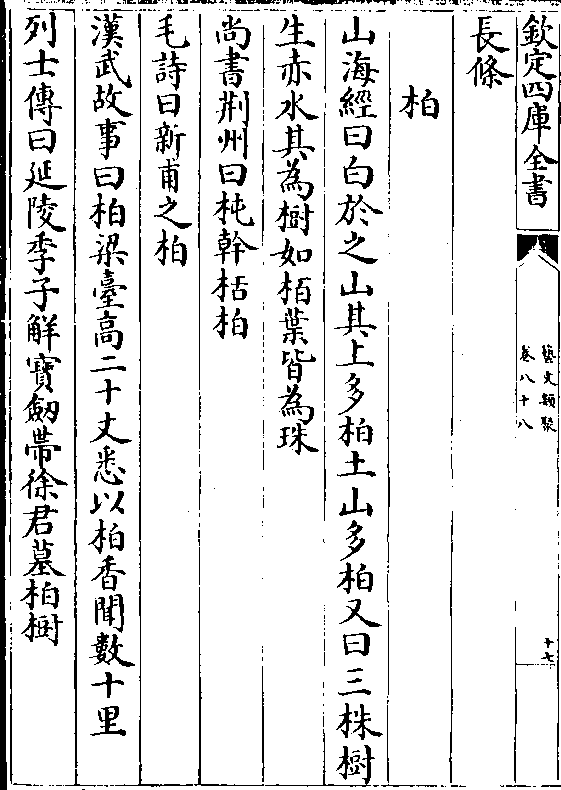 欽定四庫全書
藝文類聚
卷八十八
十七
長條
柏
山海經曰白於之山其上多柏土山多柏又曰三株樹
生赤水其為樹如栢葉皆為珠
尚書荆州曰杶幹栝柏
毛詩曰新甫之柏
漢武故事曰柏梁臺高二十丈悉以柏香聞數十里
列士傳曰延陵季子解寳劔帶徐君墓柏樹